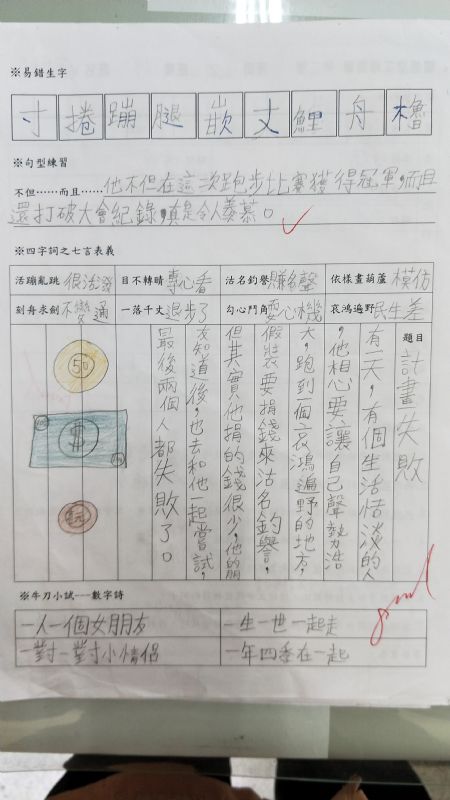 ※易錯生字
寸 捲 蹦 腿 嵌 丈 鯉 舟 櫓
※句型練習
不但……而且……他不但在這次跑步比賽獲得冠軍，而且
還打破大會紀錄，真是令人羨慕。
※四字詞之七言表義
活蹦亂跳 很活潑 目不轉睛 專心看 沽名釣譽 賺名聲 依樣畫葫蘆 模仿
刻舟求劍 不變通 一落千丈 退步了 勾心鬥角 耍心機 哀鴻遍野 民生差
題目 計畫失敗
有一天，有個生活恬淡的人
，他相心要讓自己聲勢浩
大，跑到一個哀鴻遍野的地方，
假裝要捐錢來沽名釣譽。
但其實他捐的錢很少，他的朋
友知道後，也去和他一起嘗試，
最後兩個人都失敗了。
50
※牛刀小試---數字詩
一人一個女朋友
一生一世一起走
一對一對小情侶
一年四季在一起
good